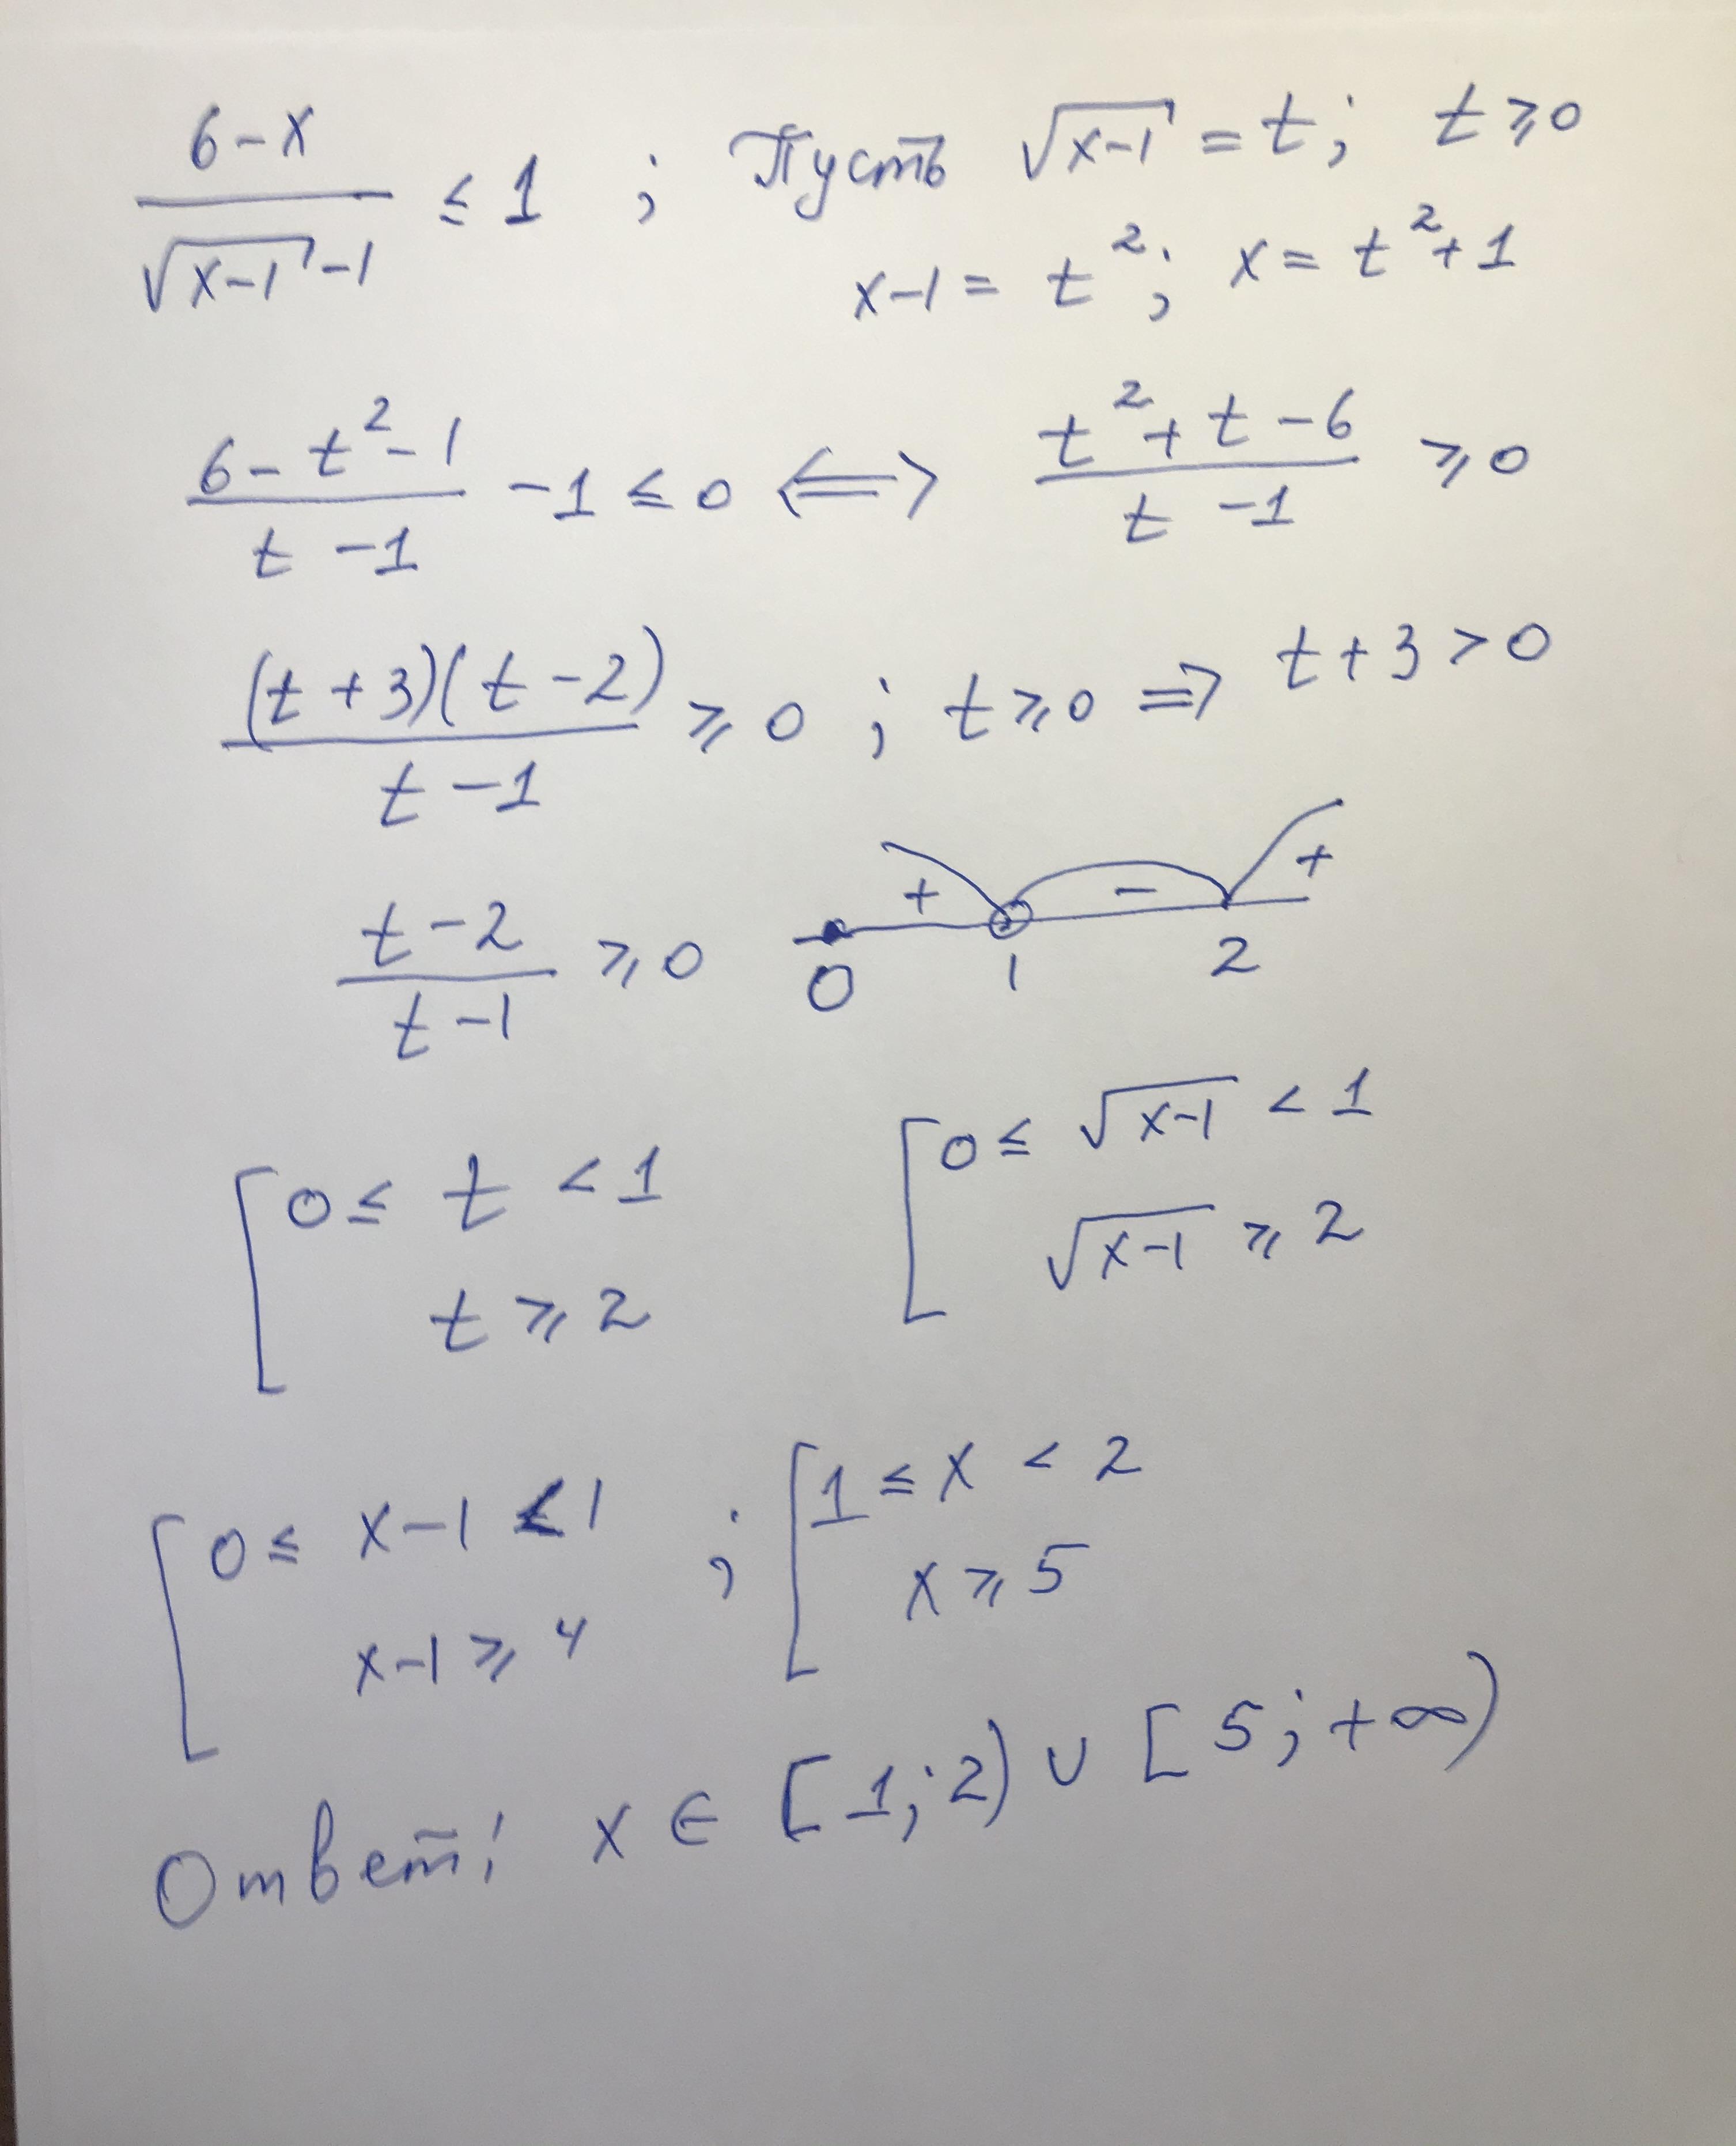 (6-x)/(√(x-1) -1) ≤ 1 ; Пусть √(x-1) = t; t ≥ 0
x-1 = t²; x = t²+1
(6-t²-1)/(t-1) -1 ≤ 0 ⟺ (t²+t-6)/(t-1) ≥ 0
((t+3)(t-2))/(t-1) ≥ 0 ; t ≥ 0 ⇒ t+3 > 0
(t-2)/(t-1) ≥ 0
+ - +
0 1 2
[ 0 ≤ t < 1
t ≥ 2
[ 0 ≤ √(x-1) < 1
√(x-1) ≥ 2
[ 0 ≤ x-1 < 1
x-1 ≥ 4
; [ 1 ≤ x < 2
x ≥ 5
Ответ: x ∈ [1;2) ∪ [5;+∞)